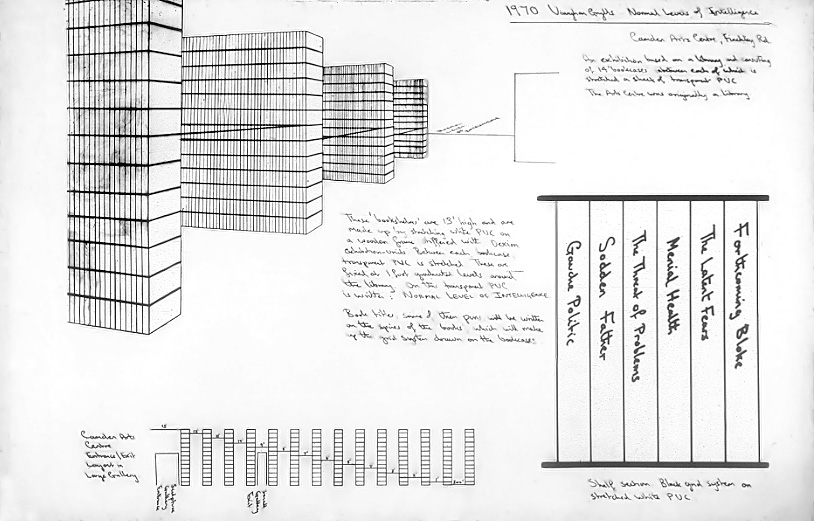 1970 Vaughan Grylls Normal Levels of Intelligence
Camden Arts Centre, Finchley Rd
An exhibition based on a library and consisting
of 14 bookcases between each of which is
stretched a sheet of transparent PVC
The Arts Centre was originally a library
These 'bookshelves' are 13' high and are
made up by stretching white PVC on
a wooden frame stiffened with Dexion
exhibition-units. Between each bookcase
transparent PVC is stretched. These are
fixed at 1 foot graduated levels around
the library. On the transparent PVC
is written: NORMAL LEVEL OF INTELLIGENCE
Book titles, some of them puns will be written
on the spines of the books, which will make
up the grid system drawn on the bookcases
Gauche Politic
Sodden Father
The Threat of Problems
Menial Health
The Latent Fears
Forthcoming Bloke
Shelf section Black grid system on
stretched white PVC
Camden Arts
Centre
Entrance/Exit
Layout in
Large Gallery
Sculpture
Gallery
Entrance
Small
Gallery
Exit